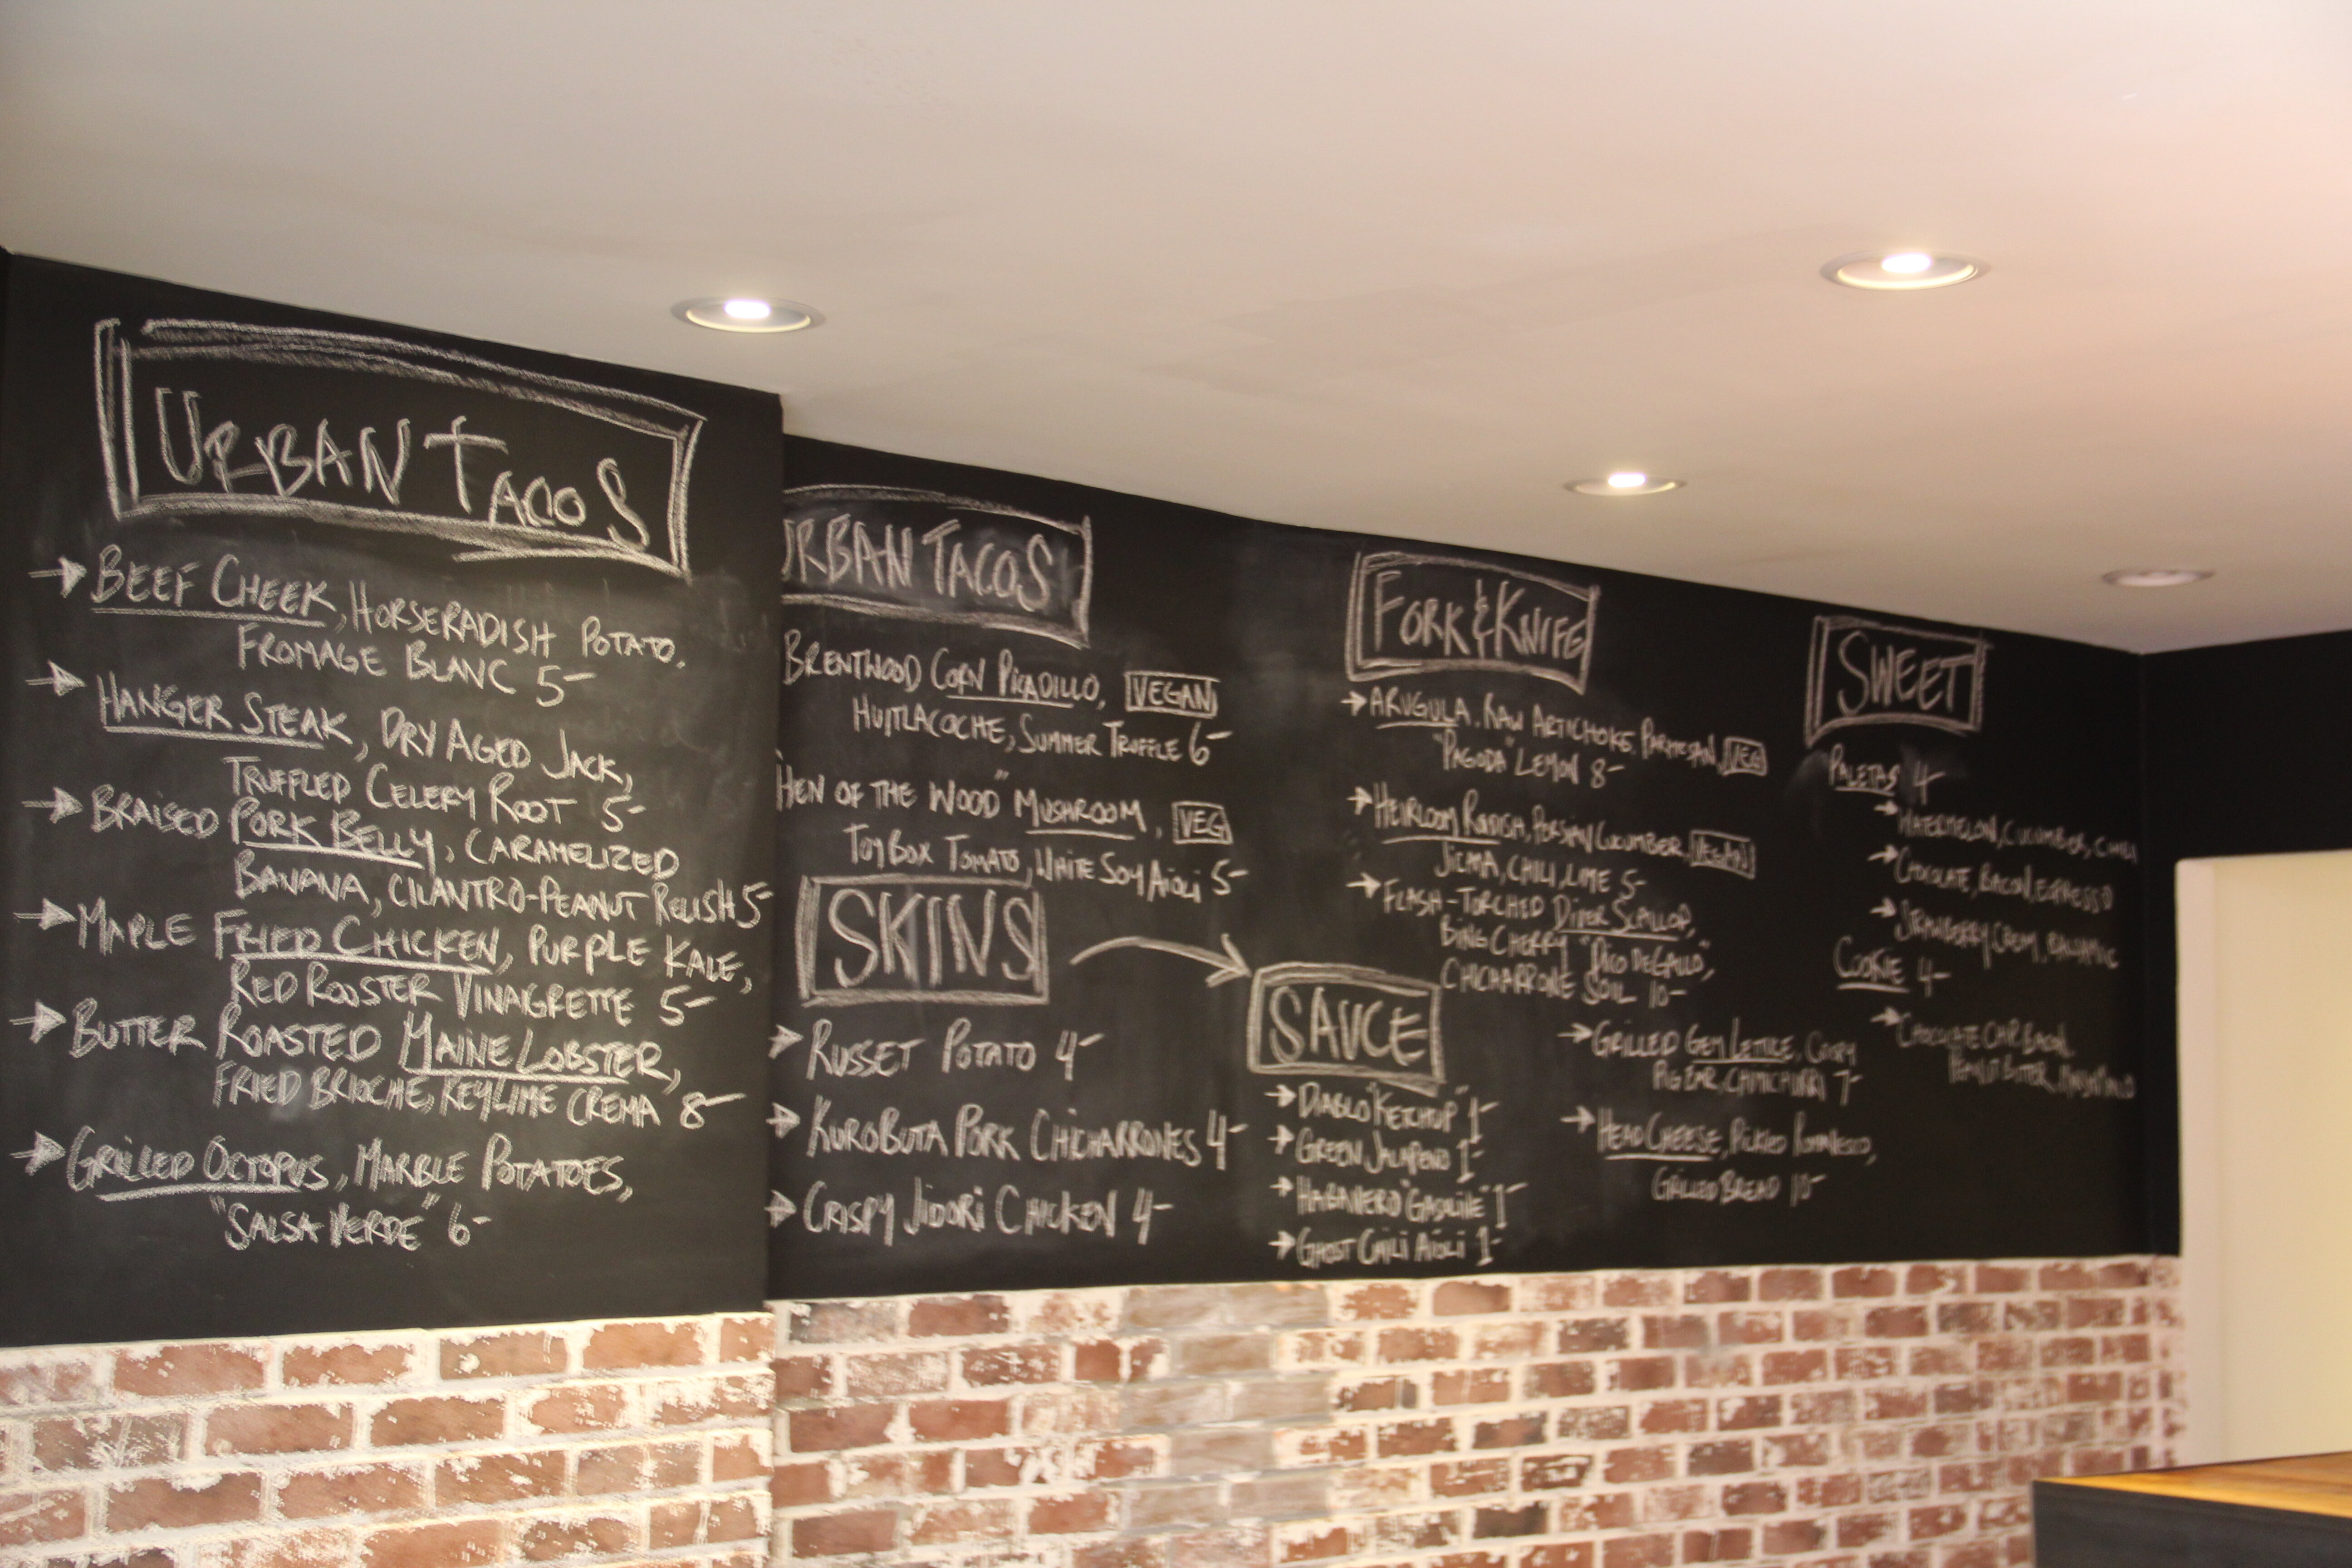 URBAN TACOS
BEEF CHEEK, HORSERADISH POTATO,
FROMAGE BLANC 5-
HANGER STEAK, DRY AGED JACK,
TRUFFLED CELERY ROOT 5-
BRAISED PORK BELLY, CARAMELIZED
BANANA, CILANTRO-PEANUT RELISH 5-
MAPLE FRIED CHICKEN, PURPLE KALE,
RED ROOSTER VINAGRETTE 5-
BUTTER ROASTED MAINE LOBSTER,
FRIED BRIOCHE, KEYLIME CREMA 8-
GRILLED OCTOPUS, MARBLE POTATOES,
"SALSA VERDE" 6-
RBAN TACOS
BRENTWOOD CORN PICADILLO, VEGAN
HUITLACOCHE, SUMMER TRUFFLE 6-
HEN OF THE WOOD" MUSHROOM, VEG
TOYBOX TOMATO, WHITE SOY AIOLI 5-
SKINS
RUSSET POTATO 4-
KUROBUTA PORK CHICHARRONES 4-
CRISPY JIDORI CHICKEN 4-
SAUCE
DIABLO "KETCHUP" 1-
GREEN JALAPENO 1-
HABANERO "GASOLINE" 1-
GHOST CHILI AIOLI 1-
FORK & KNIFE
ARUGULA, RAW ARTICHOKE, PARMESAN, VEG
"PAGODA" LEMON 8-
HEIRLOOM RADISH, PERSIAN CUCUMBER, VEGAN
JICMA, CHILI, LIME 5-
FLASH-TORCHED DIVER SCALLOP,
BING CHERRY "PICO DE GALLO",
CHICHARRONE SOIL 10-
GRILLED GEM LETTUCE, CRISPY
PIG EAR, CHIMICHURRI 7-
HEAD CHEESE, PICKLED
GRILLED BREAD 10-
SWEET
PALETAS 4-
WATERMELON, CUCUMBER, CHILI
CHOCOLATE, BACON, ESPRESSO
STRAWBERRY, CREAM, BALSAMIC
COOKIE 4-
CHOCOLATE CHIP, BACON,
PEANUT BUTTER,